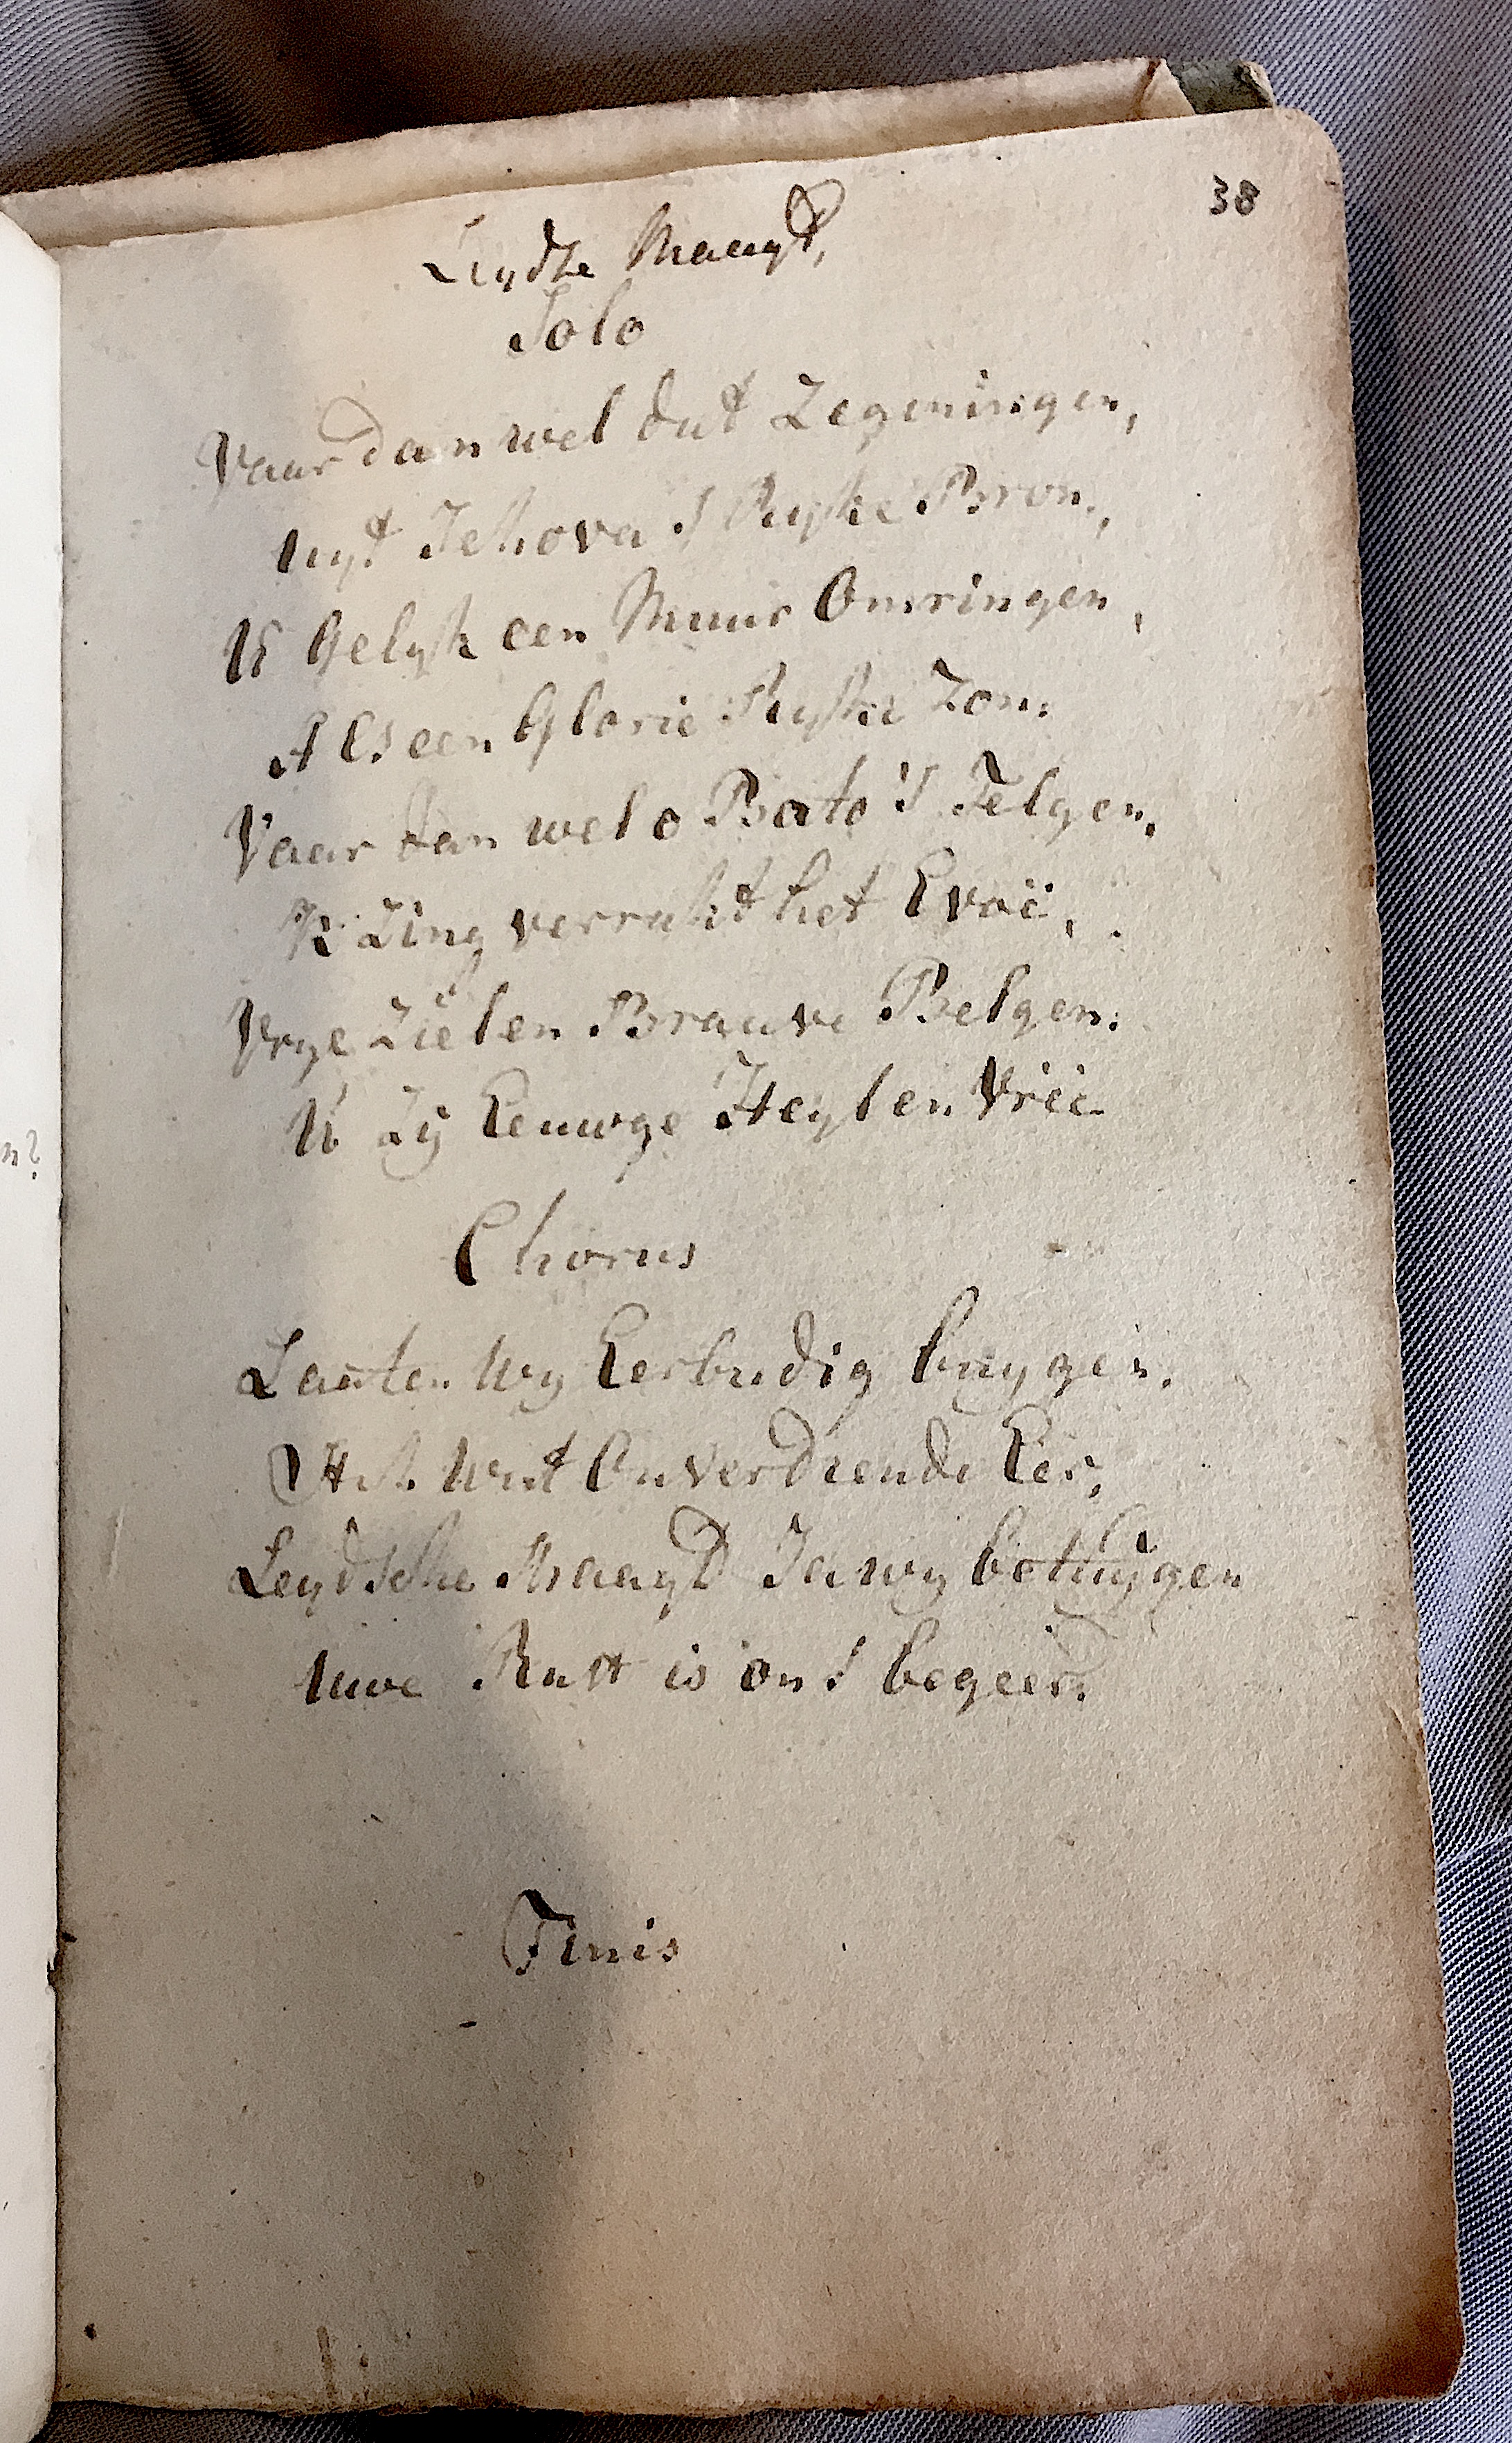 38
Leydze Maagd,
Solo
Vaar dan wel dat Zegeningen,
uyt Jehova's Ryke Bron,
U Gelyk een Muur Omringen,
Als een Glorie Ryke Zon.
Vaar dan wel o Bato's Telgen,
K Zing verrukt het Evoë,
Vrye Zielen Brauve Belgen.
U Zij Eeuwge Heyl en Vreë
Chorus
Laaten Wy Eerbiedig buygen.
Wat Onverdiende Eer,
Leydsche Maagd Ja wy betuijgen
Uwe Rust is ons begeer.
Finis
n?